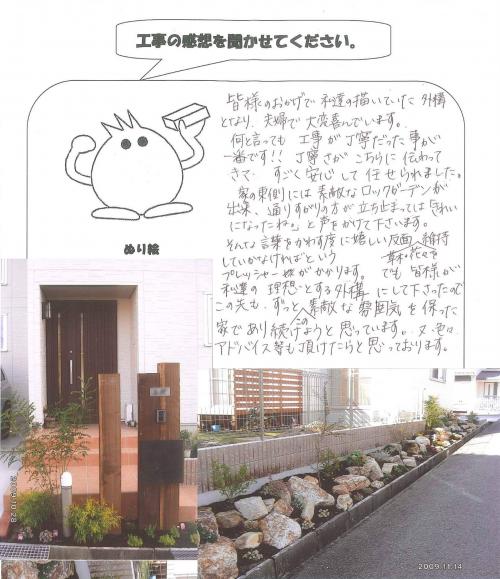 工事の感想を聞かせてください。
皆様のおかげで 私達の描いていた 外構
となり、夫婦で大変喜んでいます。
何と言っても 工事が丁寧だった事が
一番です!! 丁寧さが こちらに 伝わって
きて、すごく安心して 任せられました。
家の東側には素敵なロックガーデンが
出来、通りすがりの方が立ち止まっては「きれい
になったね。」と声をかけて下さいます。
そんな言葉をかわす度に嬉しい反面、維持
していかなければという 草木・花々を
プレッシャー 〃がかかります。 でも 皆様が
私達の 理想とする外構 にして下さったので
この先も、ずっと 素敵な 雰囲気を 保った
この
家であり続けようと思っています。又、色々
アドバイス等も頂けたらと思っております。
ぬり絵
2009 10 28
2009.11.14